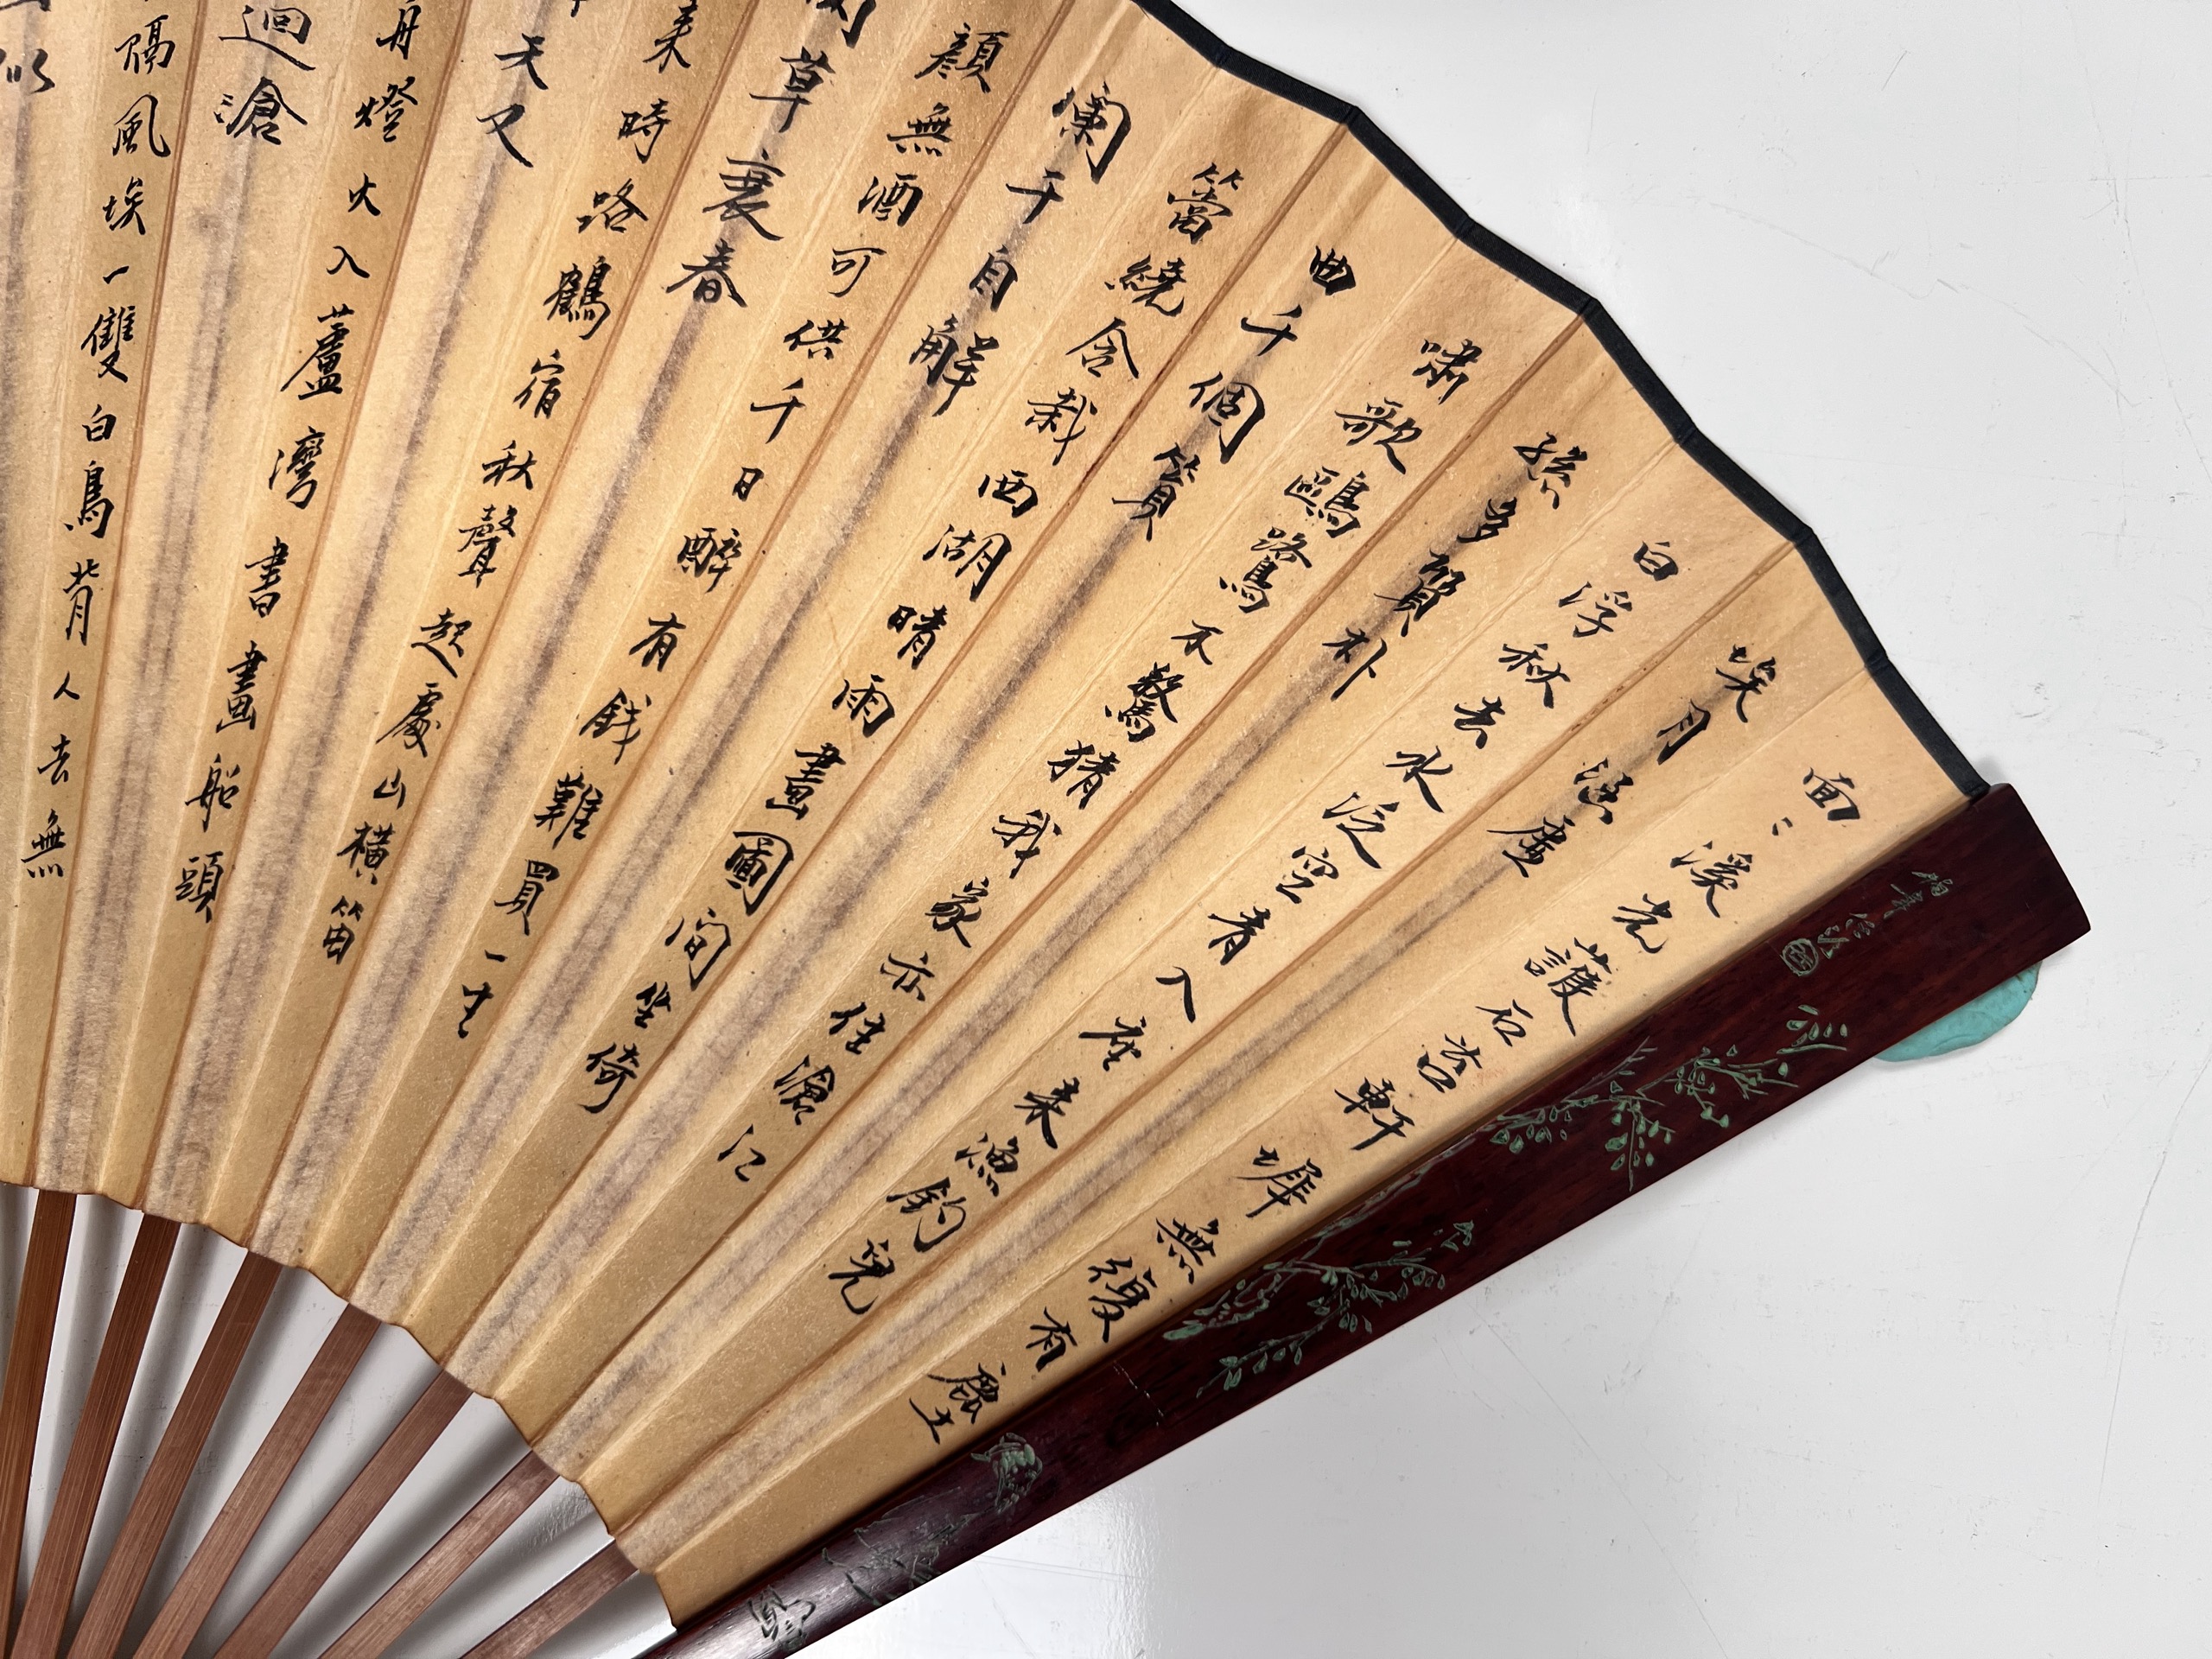 面〻溪光護石苔軒墀無復有塵
埃月涵虛
白浮秋去水泛空青入座来漁釣兒
孫多質朴
嘯歌鷗鷺不驚猜我家亦住滄江
曲千個篔
簹繞舍栽西湖晴雨畫圖間坐倚
闌干自解
顏無酒可供千日醉有錢難買一生
草裹春
来時路鶴宿秋聲起處山橫笛
天又
舟燈火入蘆灣書畫船頭
迴滄
隔風埃一雙白鳥背人去無
似